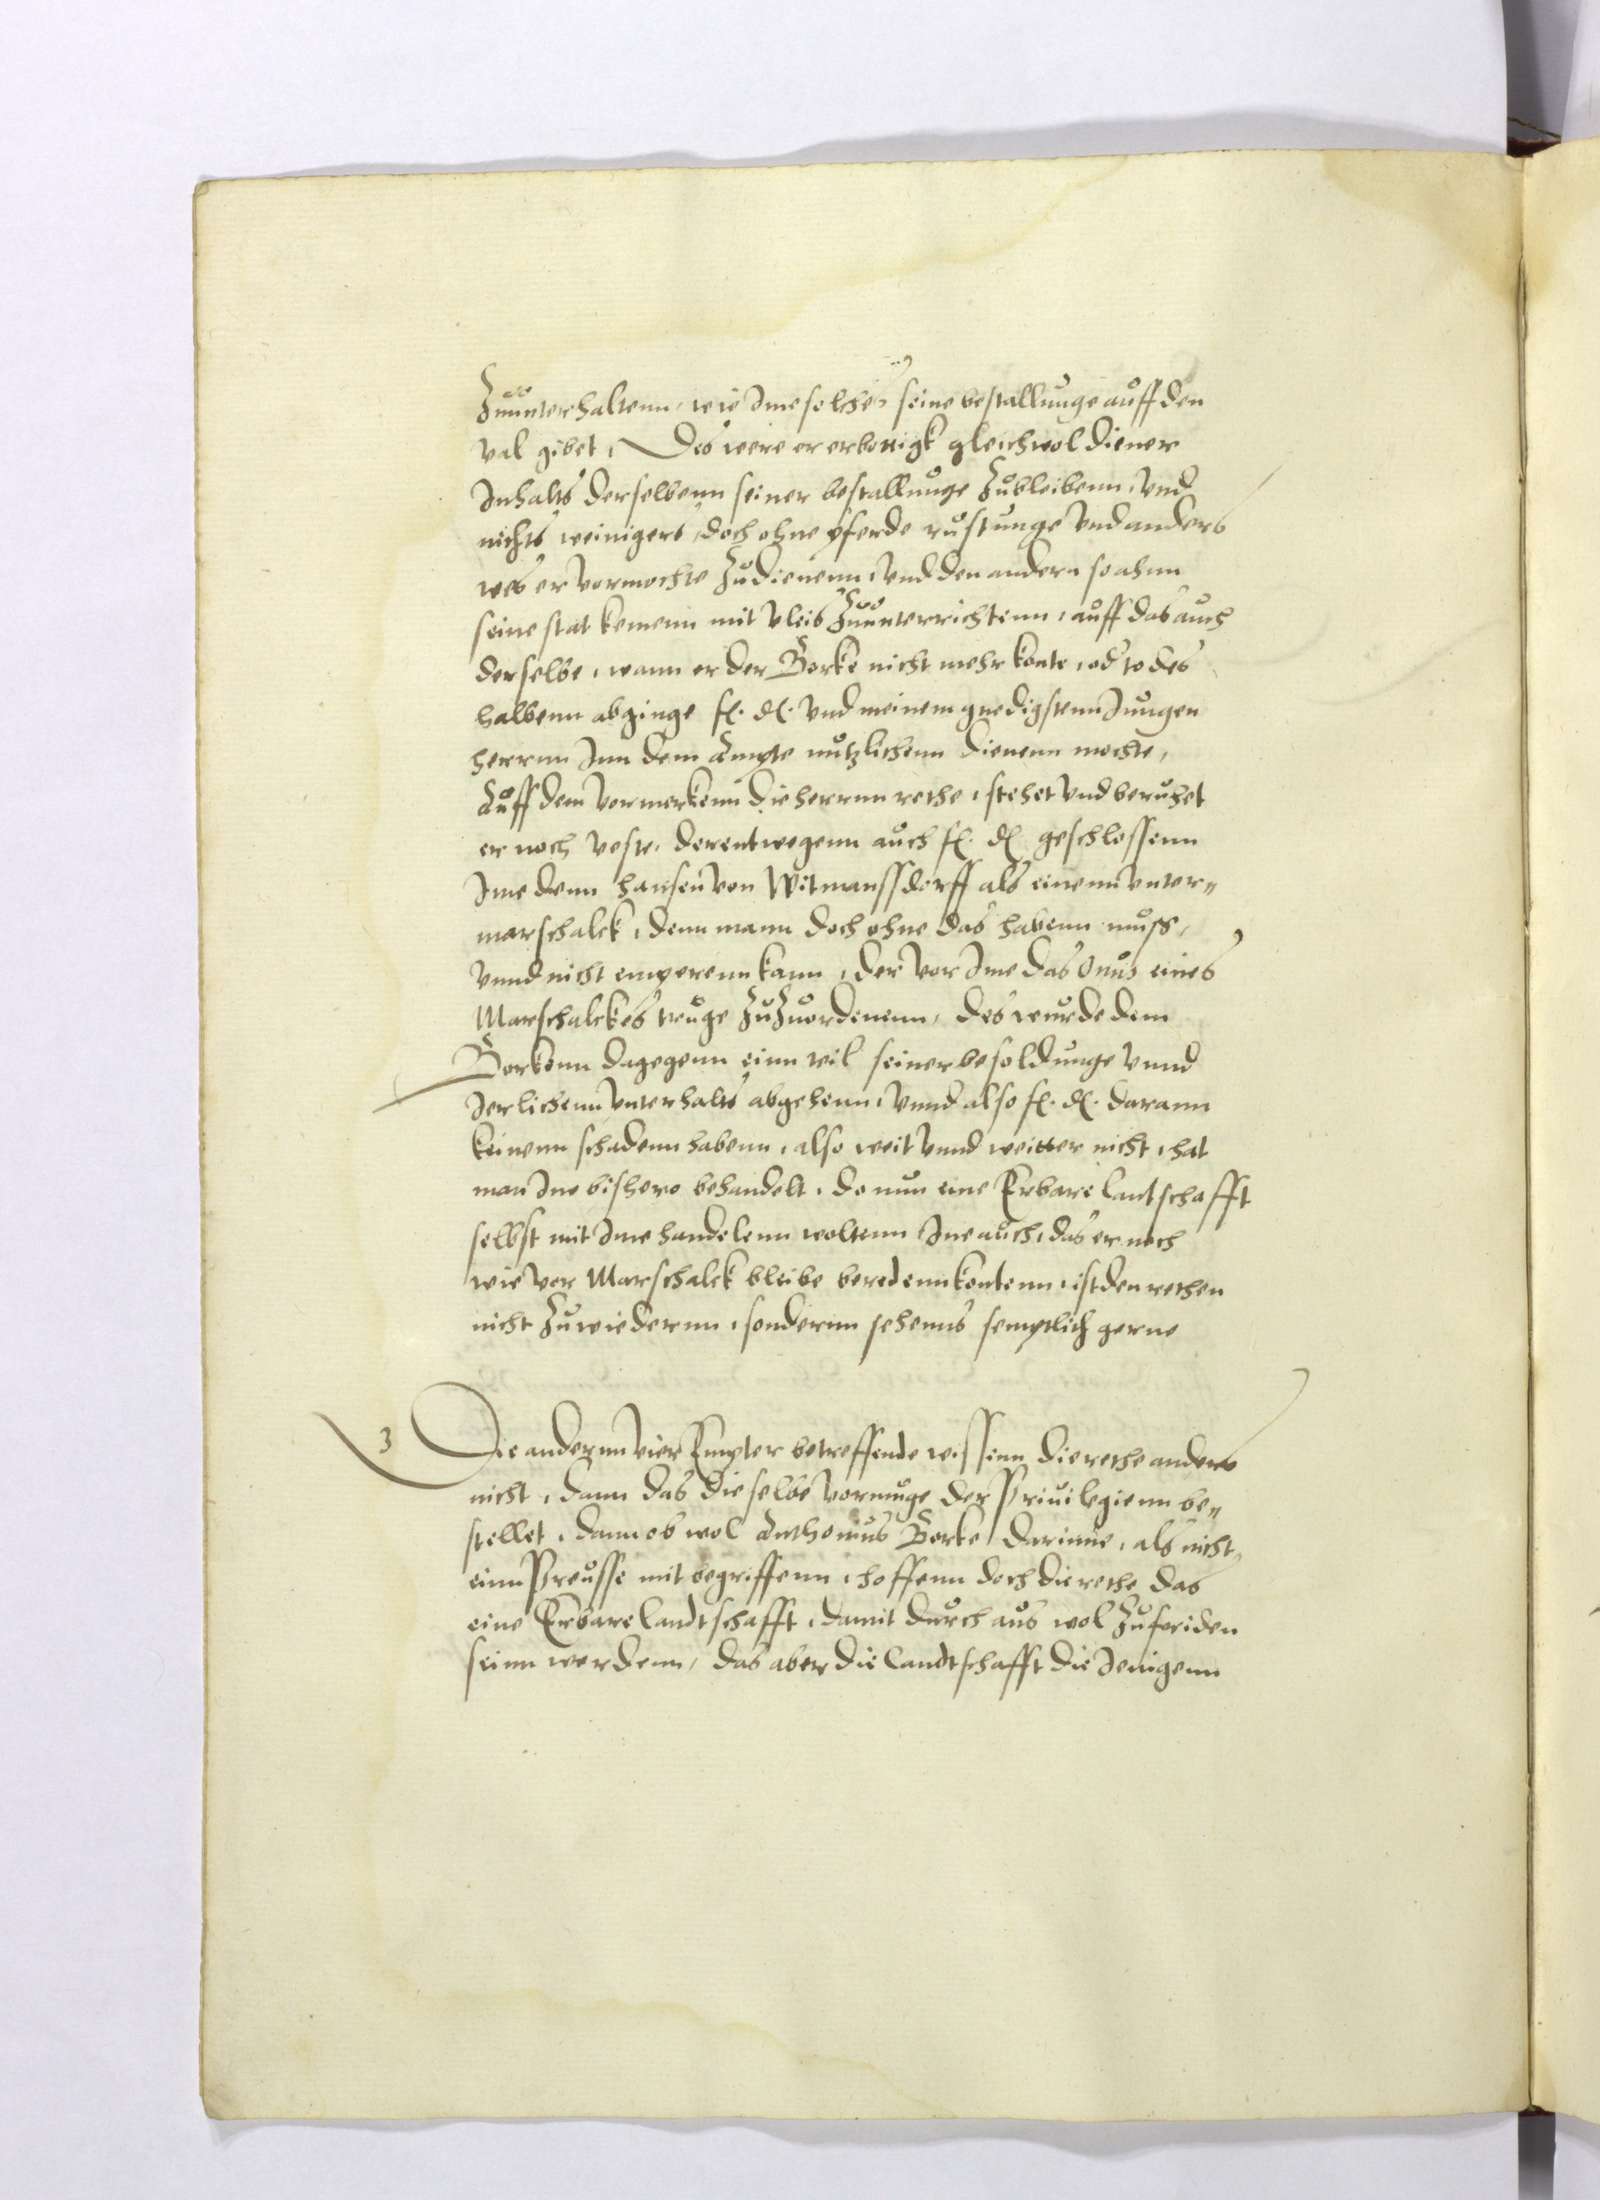 Zuunterhaltenn, wie Ime solches seine bestallunge auff den
val gibet, Des were er erbottigk gleichwol diener
Inhalts derselbenn seiner bestallunge Zubleibenn, vnd
nichts weinigers, doch ohne pferde rustunge vnd anders
wes er vormochte Zudienenn, vnd den andern so ahnn
seine stat kemenn mit vleis Zuunterrichtenn, auff das auch
derselbe, wann er der Borke nicht mehr konte, od todes
halbenn abginge fl. dl. vnd meinem gnedigstenn Jungen
herrnn Inn dem Ampte nutzlichenn dienenn mochte,
Auff dem vormerkenn die herrnn rethe, stehet vnd beruhet
er noch veste, derentwegenn auch fl. dl geschlossenn
Ime denn hansen von Witmanssdorff als einenn vnter"
marschalck, denn mann doch ohne das habenn muss,
vnnd nicht emperenn kann, der vor Ime das Onus eines
Marschalckes truge ZuZuordenenn, des wurde dem
Borkenn dagegenn einn vil seiner besoldunge vnnd
Jerlichenn vnterhalts abgehenn, vnnd also fl. dl. darann
keinenn schadenn habenn, also weit vnnd weitter nicht, hat
man Ine bishero behandelt, do nun eine Erbare lantschafft
selbst mit Ime handelenn woltenn Ine auch, das er noch
wie vor Marschalck bleibe beredenn kontenn, ist den rethen
nicht Zuwiedernn, sondernn sehenns semptlich gerne
3 Die andernn vier Empter betreffende wissenn die rethe anders
nicht, dann das dieselbe vormuge der Priuilegienn be"
stellet, dann ob wol Anthonius Borke darinne, als nicht
einn Preusse mit begriffenn, hoffenn doch die rethe das
eine Erbare landtschafft, damit durchaus wol Zufriden
seinn werdenn, das aber die landtschafft die Jenigenn